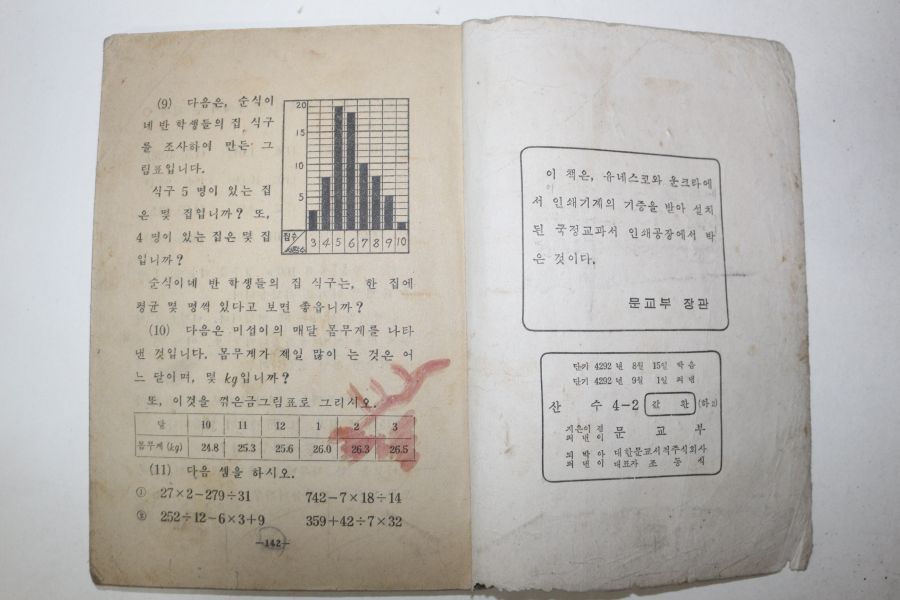 (9) 다음은, 순식이
네 반 학생들의 집 식구
를 조사하여 만든 그
림표입니다.
식구 5 명이 있는 집
은 몇 집입니까? 또,
4 명이 있는 집은 몇 집
입니까?
20
15
10
5
집수
3 4 5 6 7 8 9 10
순식이네 반 학생들의 집 식구는, 한 집에
평균 몇 명씩 있다고 보면 좋읍니까?
(10) 다음은 미섭이의 매달 몸무게를 나타
낸 것입니다. 몸무게가 제일 많이 는 것은 어
느 달이며, 몇 kg입니까?
또, 이것을 꺾은금그림표로 그리시오.
달 10 11 12 1 2 3
몸무게 (kg) 24.8 25.3 25.6 26.0 26.3 26.5
(11) 다음 셈을 하시오.
① 27×2−279÷31 742−7×18÷14
② 252÷12−6×3+9 359+42÷7×32
—142—
이 책은, 유네스코와 운크라에
서 인쇄기계의 기증을 받아 설치
된 국정교과서 인쇄공장에서 박
은 것이다.
문교부 장관
단기 4292 년 8월 15일 박음
단기 4292 년 9월 1일 펴냄
산 수 4-2 값 환
지은이 겸
펴낸이 문 교 부
박아
펴낸이 대한문교서적주식회사
대표자 조 동 식